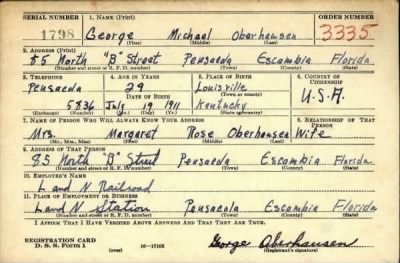 SERIAL NUMBER 1. NAME (Print) ORDER NUMBER
1798 George Michael Oberhausen 3335
(First) (Middle) (Last)
2. ADDRESS (Print)
85 North "B" Street Pensacola Escambia Florida
(Number and street or R. F. D. number) (Town) (County) (State)
3. TELEPHONE 4. AGE IN YEARS 5. PLACE OF BIRTH 6. COUNTRY OF CITIZENSHIP
Pensacola 29 Louisville
DATE OF BIRTH (Town or county) U.S.A.
5836 July 19 1911 Kentucky
(Exchange) (Number) (Mo.) (Day) (Yr.) (State or country)
7. NAME OF PERSON WHO WILL ALWAYS KNOW YOUR ADDRESS 8. RELATIONSHIP OF THAT PERSON
Mrs. Margaret Rose Oberhausen Wife
(Mr., Mrs., Miss) (First) (Middle) (Last)
9. ADDRESS OF THAT PERSON
85 North "B" Street Pensacola Escambia Florida
(Number and street or R. F. D. number) (Town) (County) (State)
10. EMPLOYER'S NAME
L and N Railroad
11. PLACE OF EMPLOYMENT OR BUSINESS
L and N Station Pensacola Escambia Florida
(Number and street or R. F. D. number) (Town) (County) (State)
I AFFIRM THAT I HAVE VERIFIED ABOVE ANSWERS AND THAT THEY ARE TRUE.
REGISTRATION CARD George Oberhausen
D. S. S. Form 1 (over) 16—17105 (Registrant's signature)